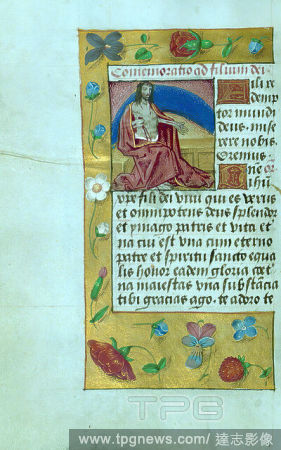 Comemoratio ad filium dei
ili re
demp
tor mundi
deus mise
rere nobis
Oremus
ne
ihu
xpe fili dei vivi qui es verus
et omnipotens deus splendor
et ymago patris et vita et
na cui est una cum eterno
patre et spiritu sancto equa
lis honor eadem gloria coet
na maiestas una substancia
tibi gracias ago. te adoro te
TPG
www.tpgnews.com/ 達志影像